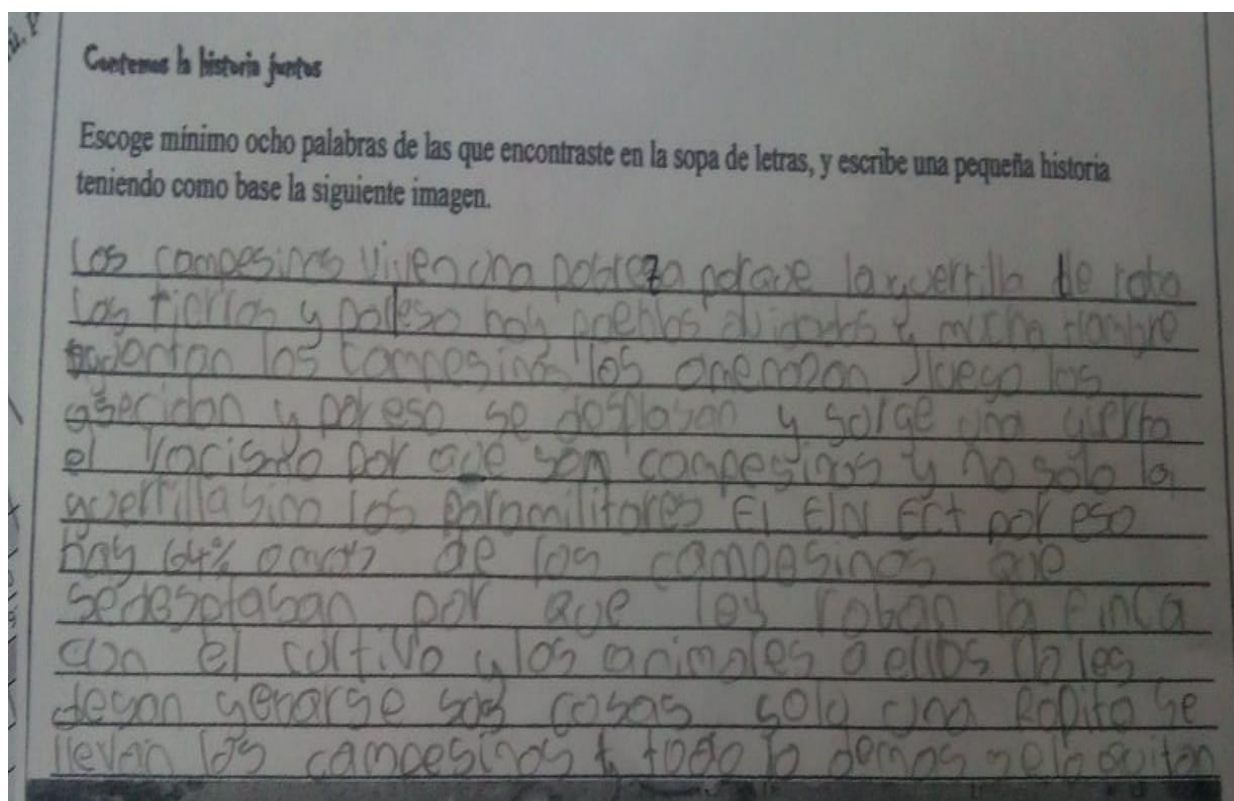 Contemos la historia juntos
Escoge mínimo ocho palabras de las que encontraste en la sopa de letras, y escribe una pequeña historia
teniendo como base la siguiente imagen.
Los campesinos viven una pobreza porque la guerrilla le roba
las tierras y por eso hay pueblos y mucha hambre
los campesinos los amenazan luego los
asecidan y por eso se desplasan y sorge una guerra
el racismo por que son campesinos y no solo la
guerrilla sino los paramilitares El ElN Ect por eso
hay 64% o mas de los campesinos que
sedesplasan por que les roban la finca
con el cultivo y los animales a ellos no les
degan yebarse sos cosas solo una Ropita se
llevan los campesinos y todo lo demas se lo quitan